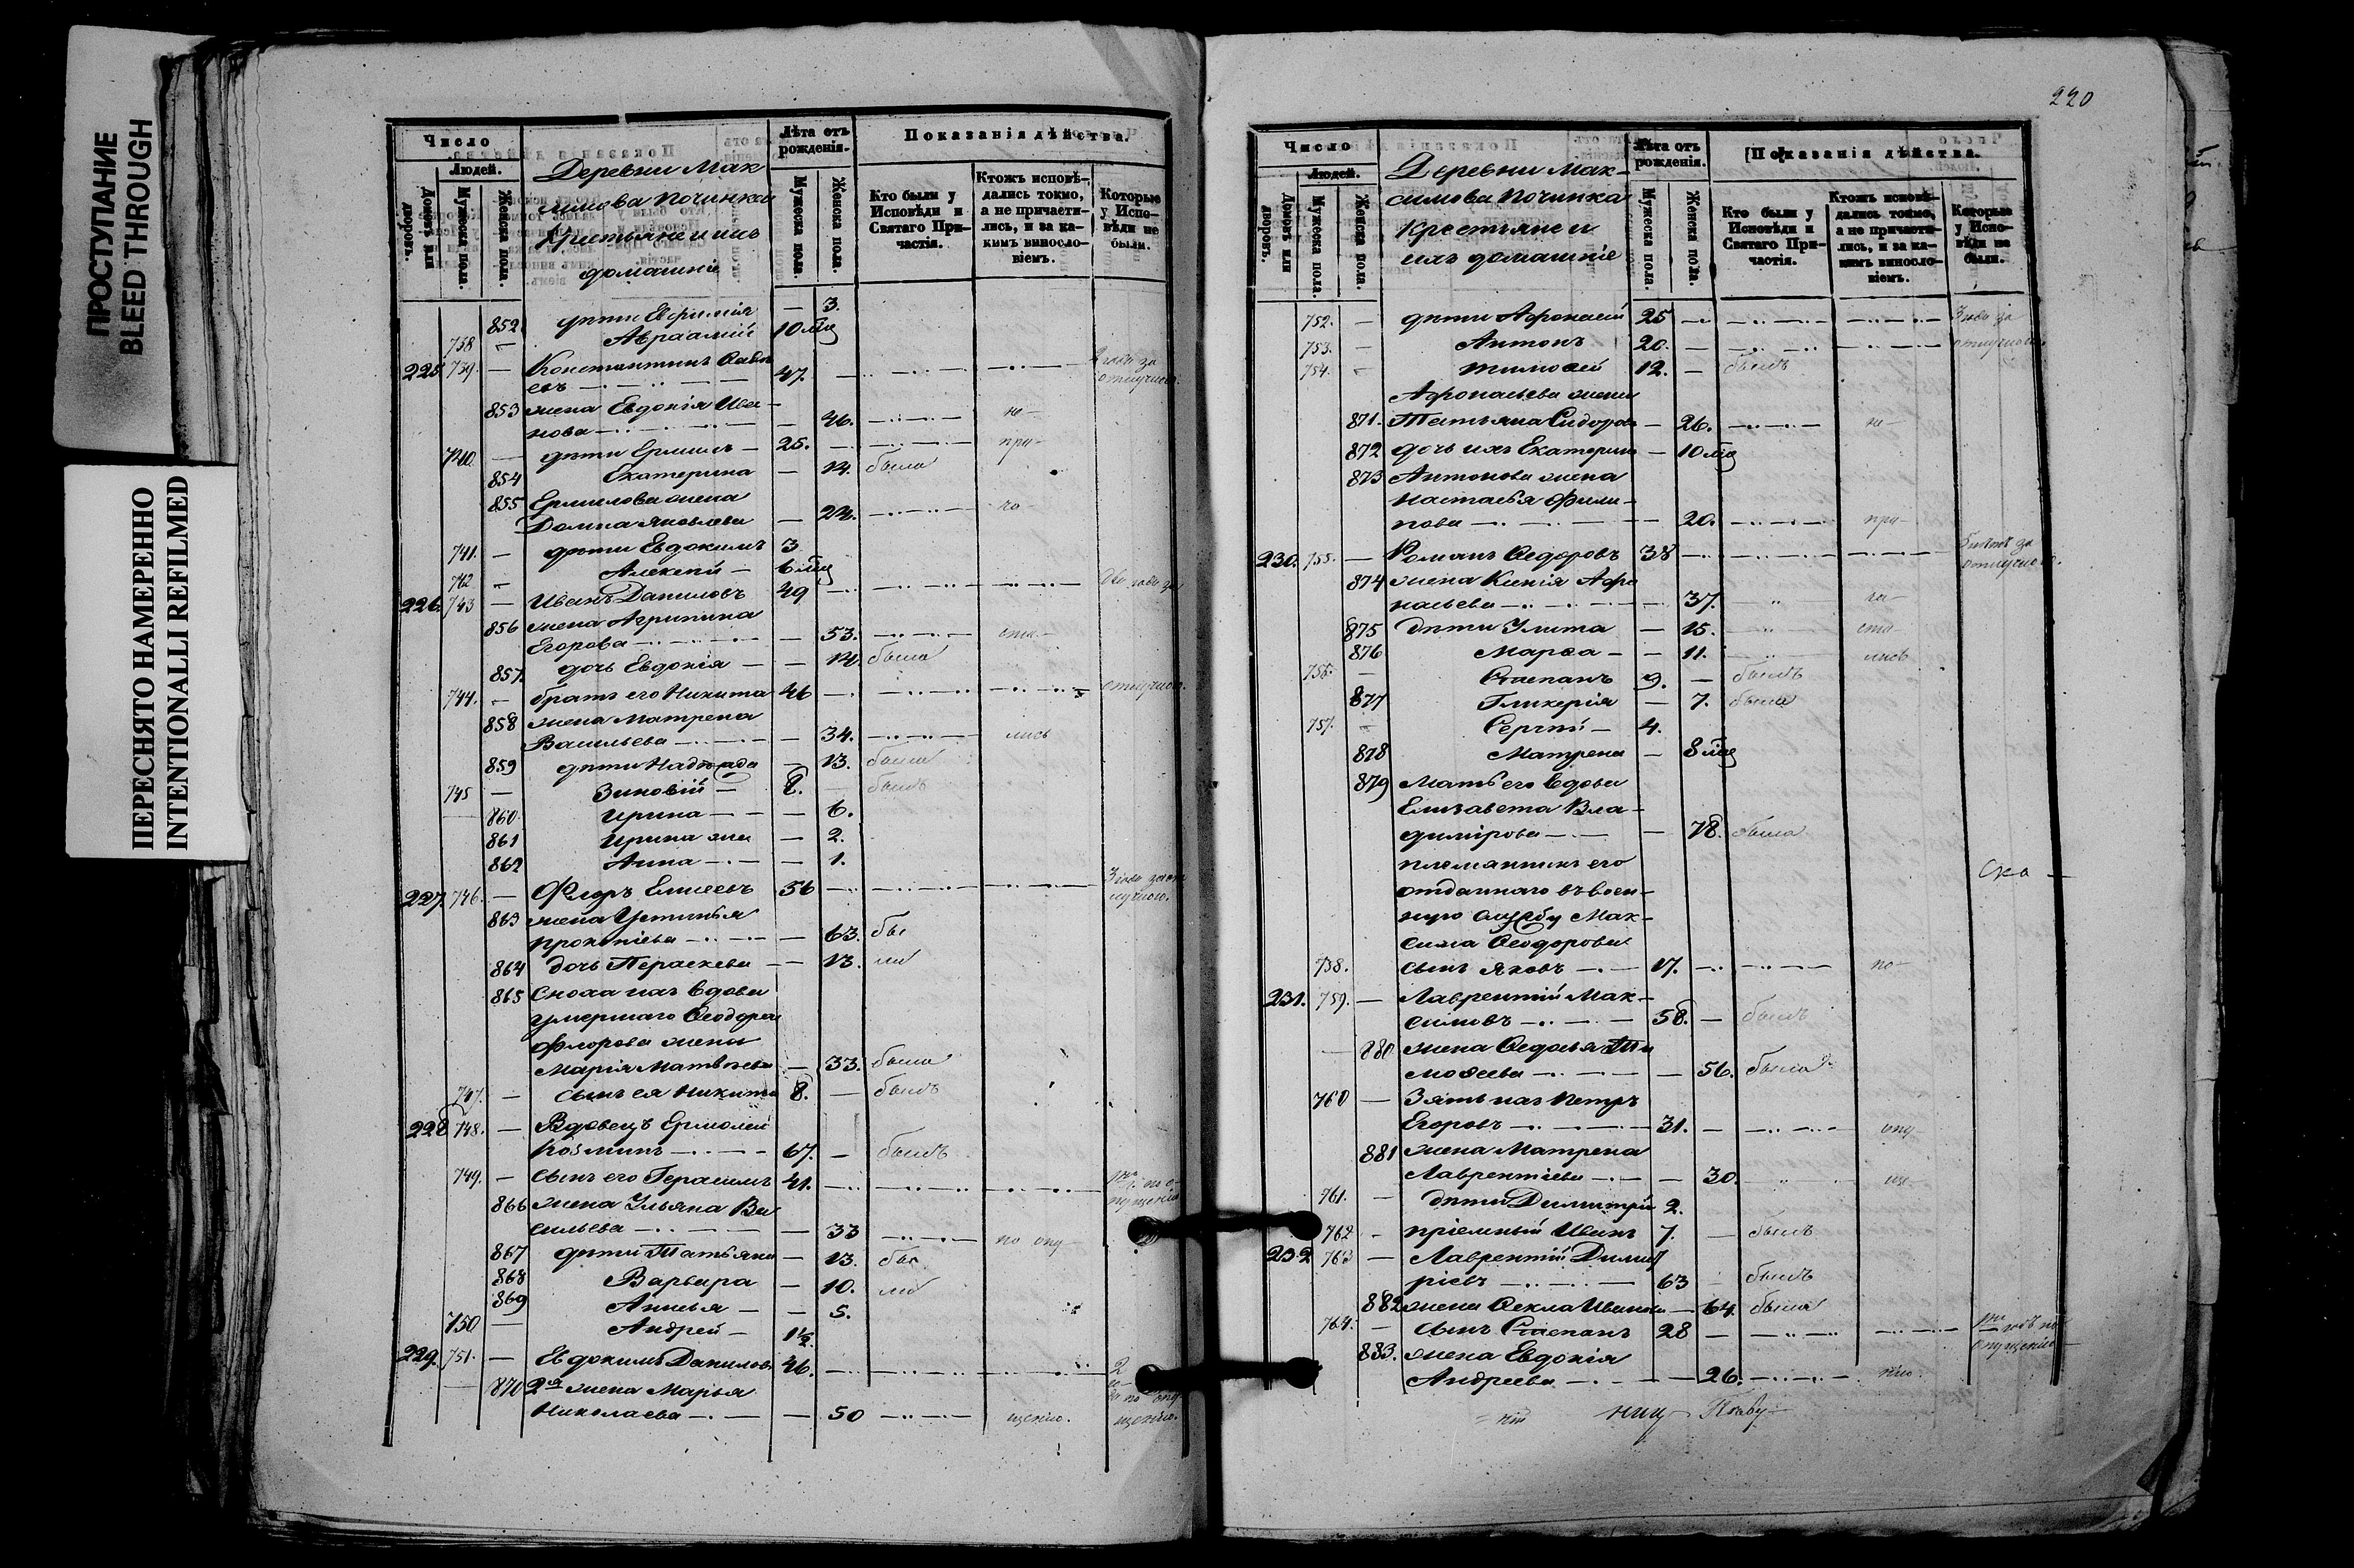 ПРОСТУПАНИЕ
BLEED THROUGH
ПЕРЕСНЯТО НАМЕРЕННО
INTENTIONALLI REFILMED
Число
Людей.
Домовъ или дворовъ.
Мужеска пола.
Женска пола.
Деревни Мак
симова Починка
Крестьяне и ихъ
домашніе
Лѣта отъ рожденія.
Мужеска пола.
Женска пола.
Показанія дѣйства.
Кто были у Исповѣди и Святаго Причастія.
Ктожъ исповѣдались токмо, а не причастились, и за какимъ винословіемъ.
Которые у Исповѣди не были.
852 дѣти Евфимія — 3.
738 — Авраамій 10 мѣ
225 739. — Константинъ Савв
евъ 47. —
853 жена Евдокія Ива
нова — 46. не-
740. — дѣти Ермилъ — 25. при-
854 Екатерина — 14. была
855 Ермилова жена
Домна Яковлева — 24.
741. — дѣти Евдокимъ 3
742 — Алексѣй — 6 мѣ
226. 743 — Иванъ Даниловъ 49
856 жена Агрипина
Егорова — 53. сти-
857. дочь Евдокія — 14. была
744. — братъ его Никита 46 отлучкою.
858 жена Матрена
Васильева — 34. лись
859 дѣти Надежда — 13. была
745 — Зиновій — 8. — былъ
860 Ирина — 6.
861 Ирина — 2.
862 Анна — 1.
227. 746. — Флоръ Елисеевъ 56
863 жена Устинья
Прокопіева — 63. бы
864 дочь Параскева — 13. ли
865 Сноха ихъ вдова
умершаго Ѳеодора
Флорова жена
Марія Матвѣева — 33. была
747. — сынъ ея Никита 8. — былъ
228 748. — Вдовецъ Ермолай
Козминъ 67. — былъ
749. — сынъ его Герасимъ 41.
866 жена Ульяна Ва
сильева — 33 по опу
867 дѣти Татьяна — 13. бы
868 Варвара — 10. ли
869 Анисья — 5.
750 — Андрей — 1½
229. 751. — Евдокимъ Даниловъ 46.
870 2я жена Марья
Николаева — 50 щенію. щенію.
220
Число
Людей.
Домовъ или дворовъ.
Мужеска пола.
Женска пола.
Деревни Мак-
симова Починка
Крестьяне и
ихъ домашніе
Лѣта отъ рожденія.
Мужеска пола.
Женска пола.
Показанія дѣйства.
Кто были у Исповѣди и Святаго Причастія.
Ктожъ исповѣдались токмо, а не причастились, и за какимъ винословіемъ.
Которые у Исповѣди не были.
752. — дѣти Афонасій 25 —
753. — Антонъ 20. —
754. — Тимоѳей 12. — былъ
Афонасьева жена
871. Татьяна Сидоров — 26. не-
872 дочь ихъ Екатерина — 10 мѣ
873 Антонова жена
Настасья Фили-
пова — 20. при-
230. 755. — Романъ Ѳедоровъ 38
874 жена Ксенія Афо
насьева — 37.
875 дѣти Улита — 15. сти-
876 Марѳа — 11. лись
756. — Степанъ 9. — былъ
877 Гликерія — 7. была
757. — Сергѣй — 4.
878 Матрена — 8 мѣ
879 Мать его вдова
Елизавета Вла-
димірова — 78. была
племянникъ его
отданнаго въ воен-
ную службу Мак-
сима Ѳеодорова
738. сынъ Яковъ 17. по-
231. 759. — Лаврентій Мак-
симовъ 58. — былъ
880 жена Ѳедосья Ти
моѳеева — 56. была
760 — Зять ихъ Петръ
Егоровъ 31. — опу
881 жена Матрена
Лаврентіева — 30. ще
761. — дѣти Димитрій 2.
762 — пріемный Иванъ 7. — былъ
232 763 — Лаврентій Димит
ріевъ 63 былъ
882 жена Ѳекла Иванова — 64. была
764. — сынъ Степанъ 28 —
883. жена Евдокія
Андреева — 26. нію.